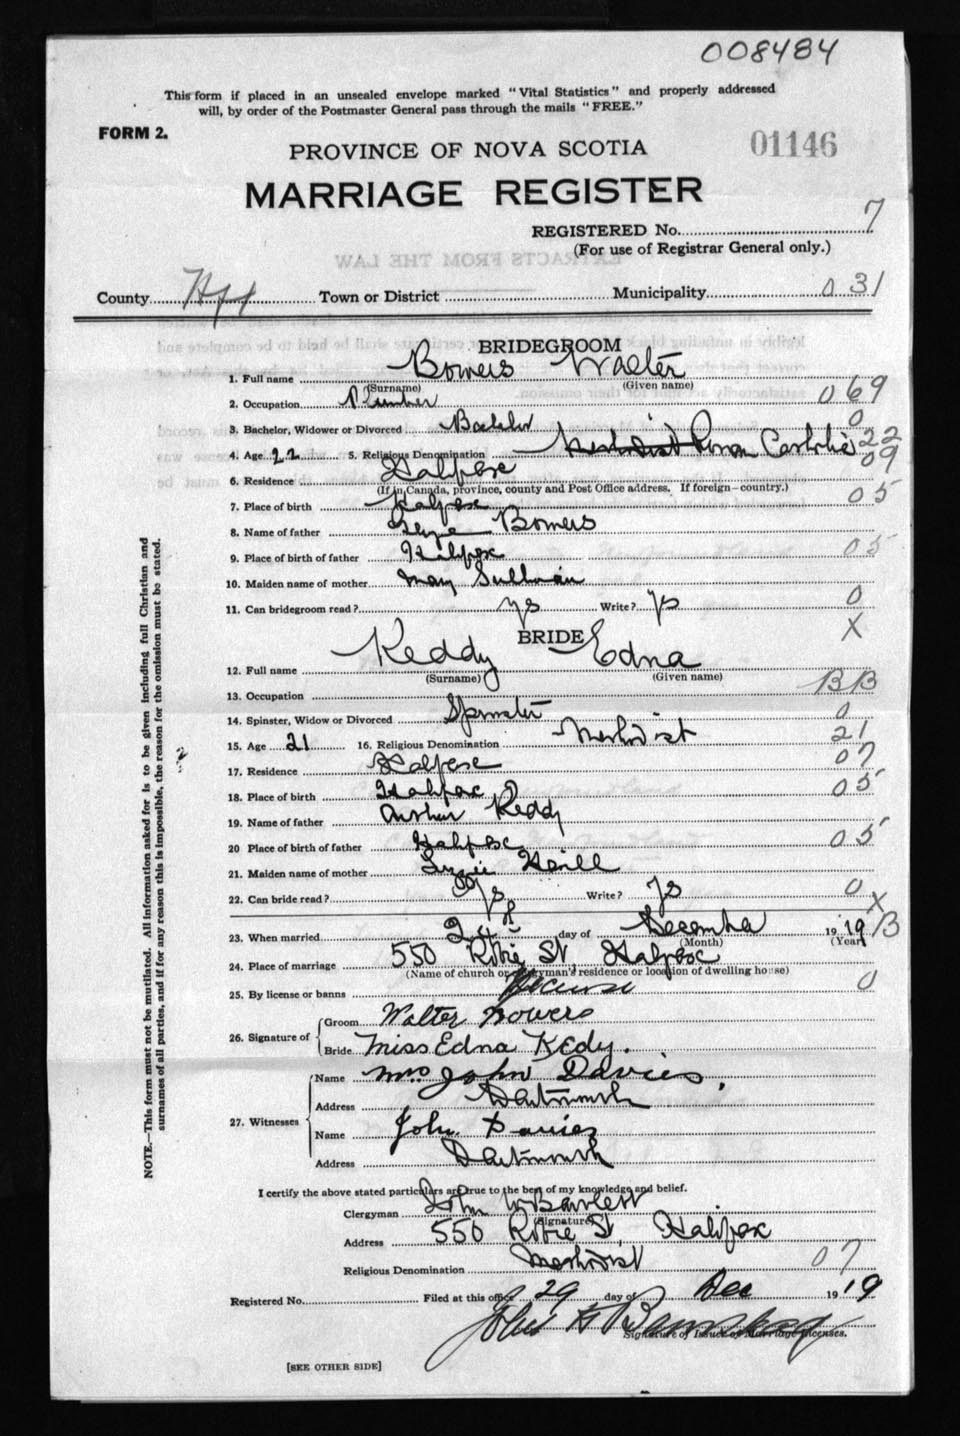 008484
This form if placed in an unsealed envelope marked "Vital Statistics" and properly addressed
will, by order of the Postmaster General pass through the mails "FREE."
FORM 2.
PROVINCE OF NOVA SCOTIA
01146
MARRIAGE REGISTER
REGISTERED No. 7
(For use of Registrar General only.)
EXTRACTS FROM THE LAW
County Hfx Town or District Municipality 031
BRIDEGROOM
1. Full name Bowers Walter
(Surname) (Given name)
2. Occupation Plumber 069
3. Bachelor, Widower or Divorced Bachelor 0
4. Age 22 5. Religious Denomination Methodist Roman Catholic 22
09
6. Residence Halifax
(If in Canada, province, county and Post Office address. If foreign—country.)
7. Place of birth Halifax 05
8. Name of father Bowers
9. Place of birth of father Halifax 05
10. Maiden name of mother Mary Sullivan
11. Can bridegroom read? ys Write? ys 0
BRIDE X
12. Full name Keddy Edna
(Surname) (Given name)
13. Occupation BB
14. Spinster, Widow or Divorced Spinster 0
15. Age 21 16. Religious Denomination Methodist 21
17. Residence Halifax 07
18. Place of birth Halifax 05
19. Name of father Arthur Keddy
20 Place of birth of father Halifax 05
21. Maiden name of mother Lizzie
22. Can bride read? ys Write? ys 0
X
23. When married 24 day of December 19 19 B
(Month) (Year)
24. Place of marriage 550 Robie St, Halifax
(Name of church or clergyman's residence or location of dwelling house)
25. By license or banns License 0
26. Signature of
Groom Walter Bowers
Bride Miss Edna Kedy.
27. Witnesses
Name Mrs John Davies.
Address Dartmouth
Name John Davies
Address Dartmouth
I certify the above stated particulars are true to the best of my knowledge and belief.
Clergyman John W Bartlett
(Signature)
Address 550 Robie St, Halifax
Religious Denomination Methodist 07
Registered No. Filed at this office 29 day of Dec 19 19
John
Signature of Issuer of Marriage Licenses.
[SEE OTHER SIDE]
NOTE.—This form must not be mutilated. All information asked for is to be given including full Christian and
surnames of all parties, and if for any reason this is impossible, the reason for the omission must be stated.